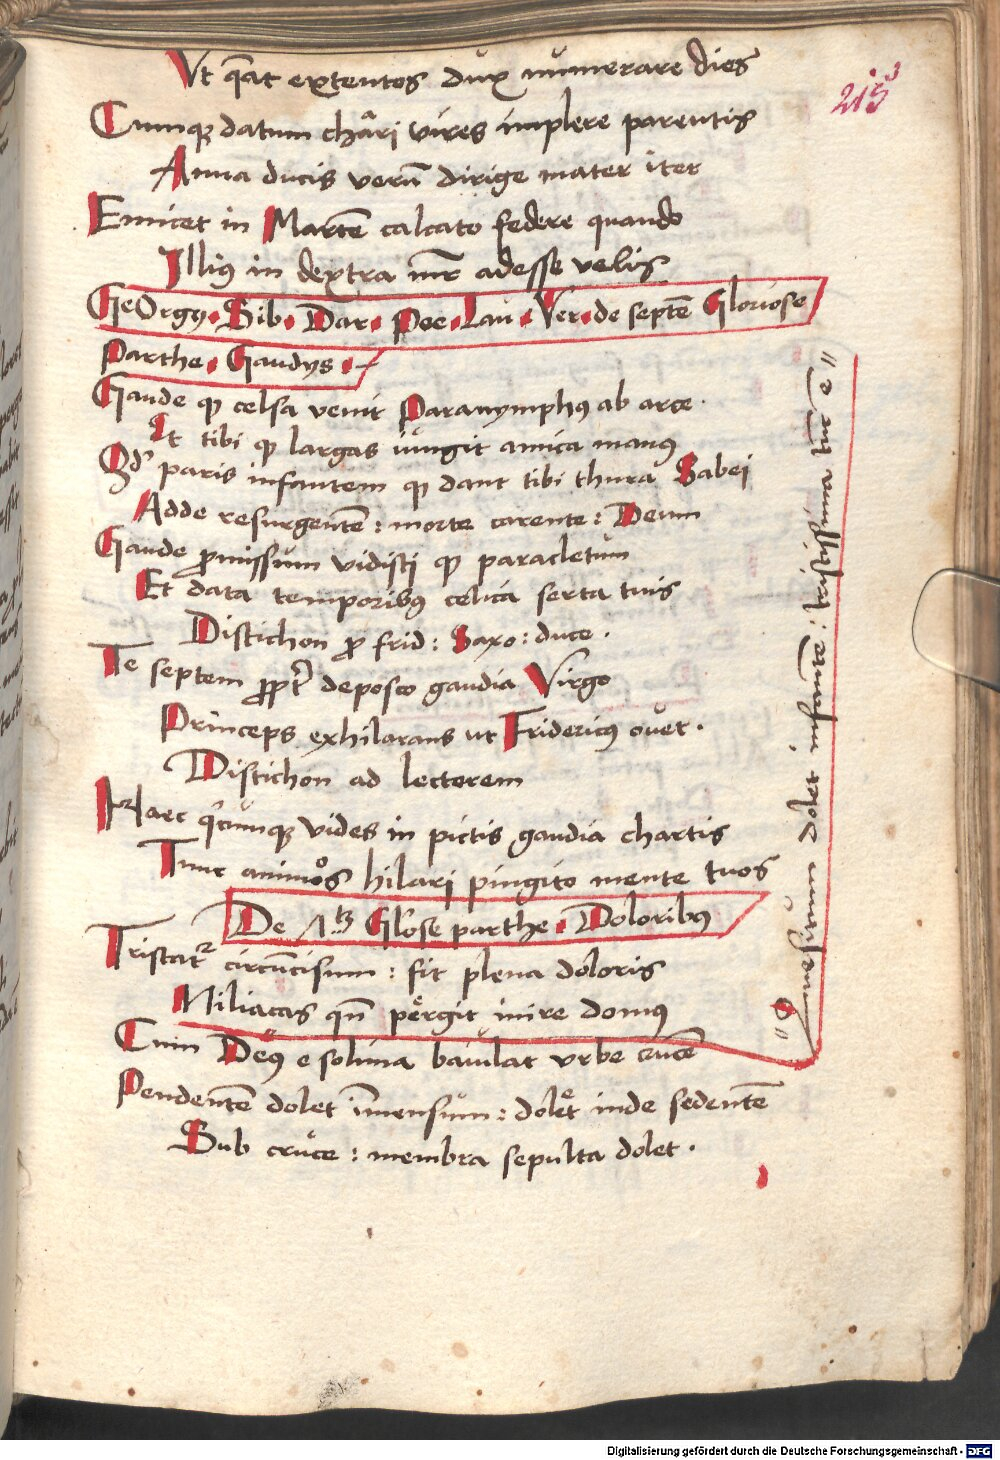 Vt q̃at extentos dux numerare dies
215
Cumq; datum chari vires implere parentis
Anna ducis verũ dirige mater iter
Emicet in Martẽ calcato federe quando
Illiꝰ in dextra mr̃ adesse velis
GeOrgy . Sib . Dar . Poe . Lau . Ver . de septẽ Gloriose
Parthe . Gaudys .
Gaude ꝙ celsa venit Paranymphꝰ ab arce .
Et tibi ꝙ largas iungit amica manus
Qd' paris infantem ꝙ dant tibi thura Sabei
Adde resurgentẽ : morte carente : Deum
Gaude ꝓmissum vidisti ꝙ paracletum
Et data temporibꝰ celica serta tuis
Distichon ꝓ frid : Saxo : duce .
Te septem deposco gaudia Virgo
Princeps exhilarans ut Fridericꝰ ouet .
Distichon ad lectorem
Haec q̃cunq; vides in pictis gaudia chartis
Tunc animos hilari pingito mente tuos
De Glose parthe . Doloribꝰ
Tristatr̃ circũcisum : fit plena doloris
Niliacas qñ pergit inire domus
Cum Deꝰ e solima baiulat vrbe crucẽ
Pendentẽ dolet ĩmensum : dolet inde sedentẽ
Sub cruce : membra sepulta dolet .
dolet infantẽ : tristissima tũc ẽ